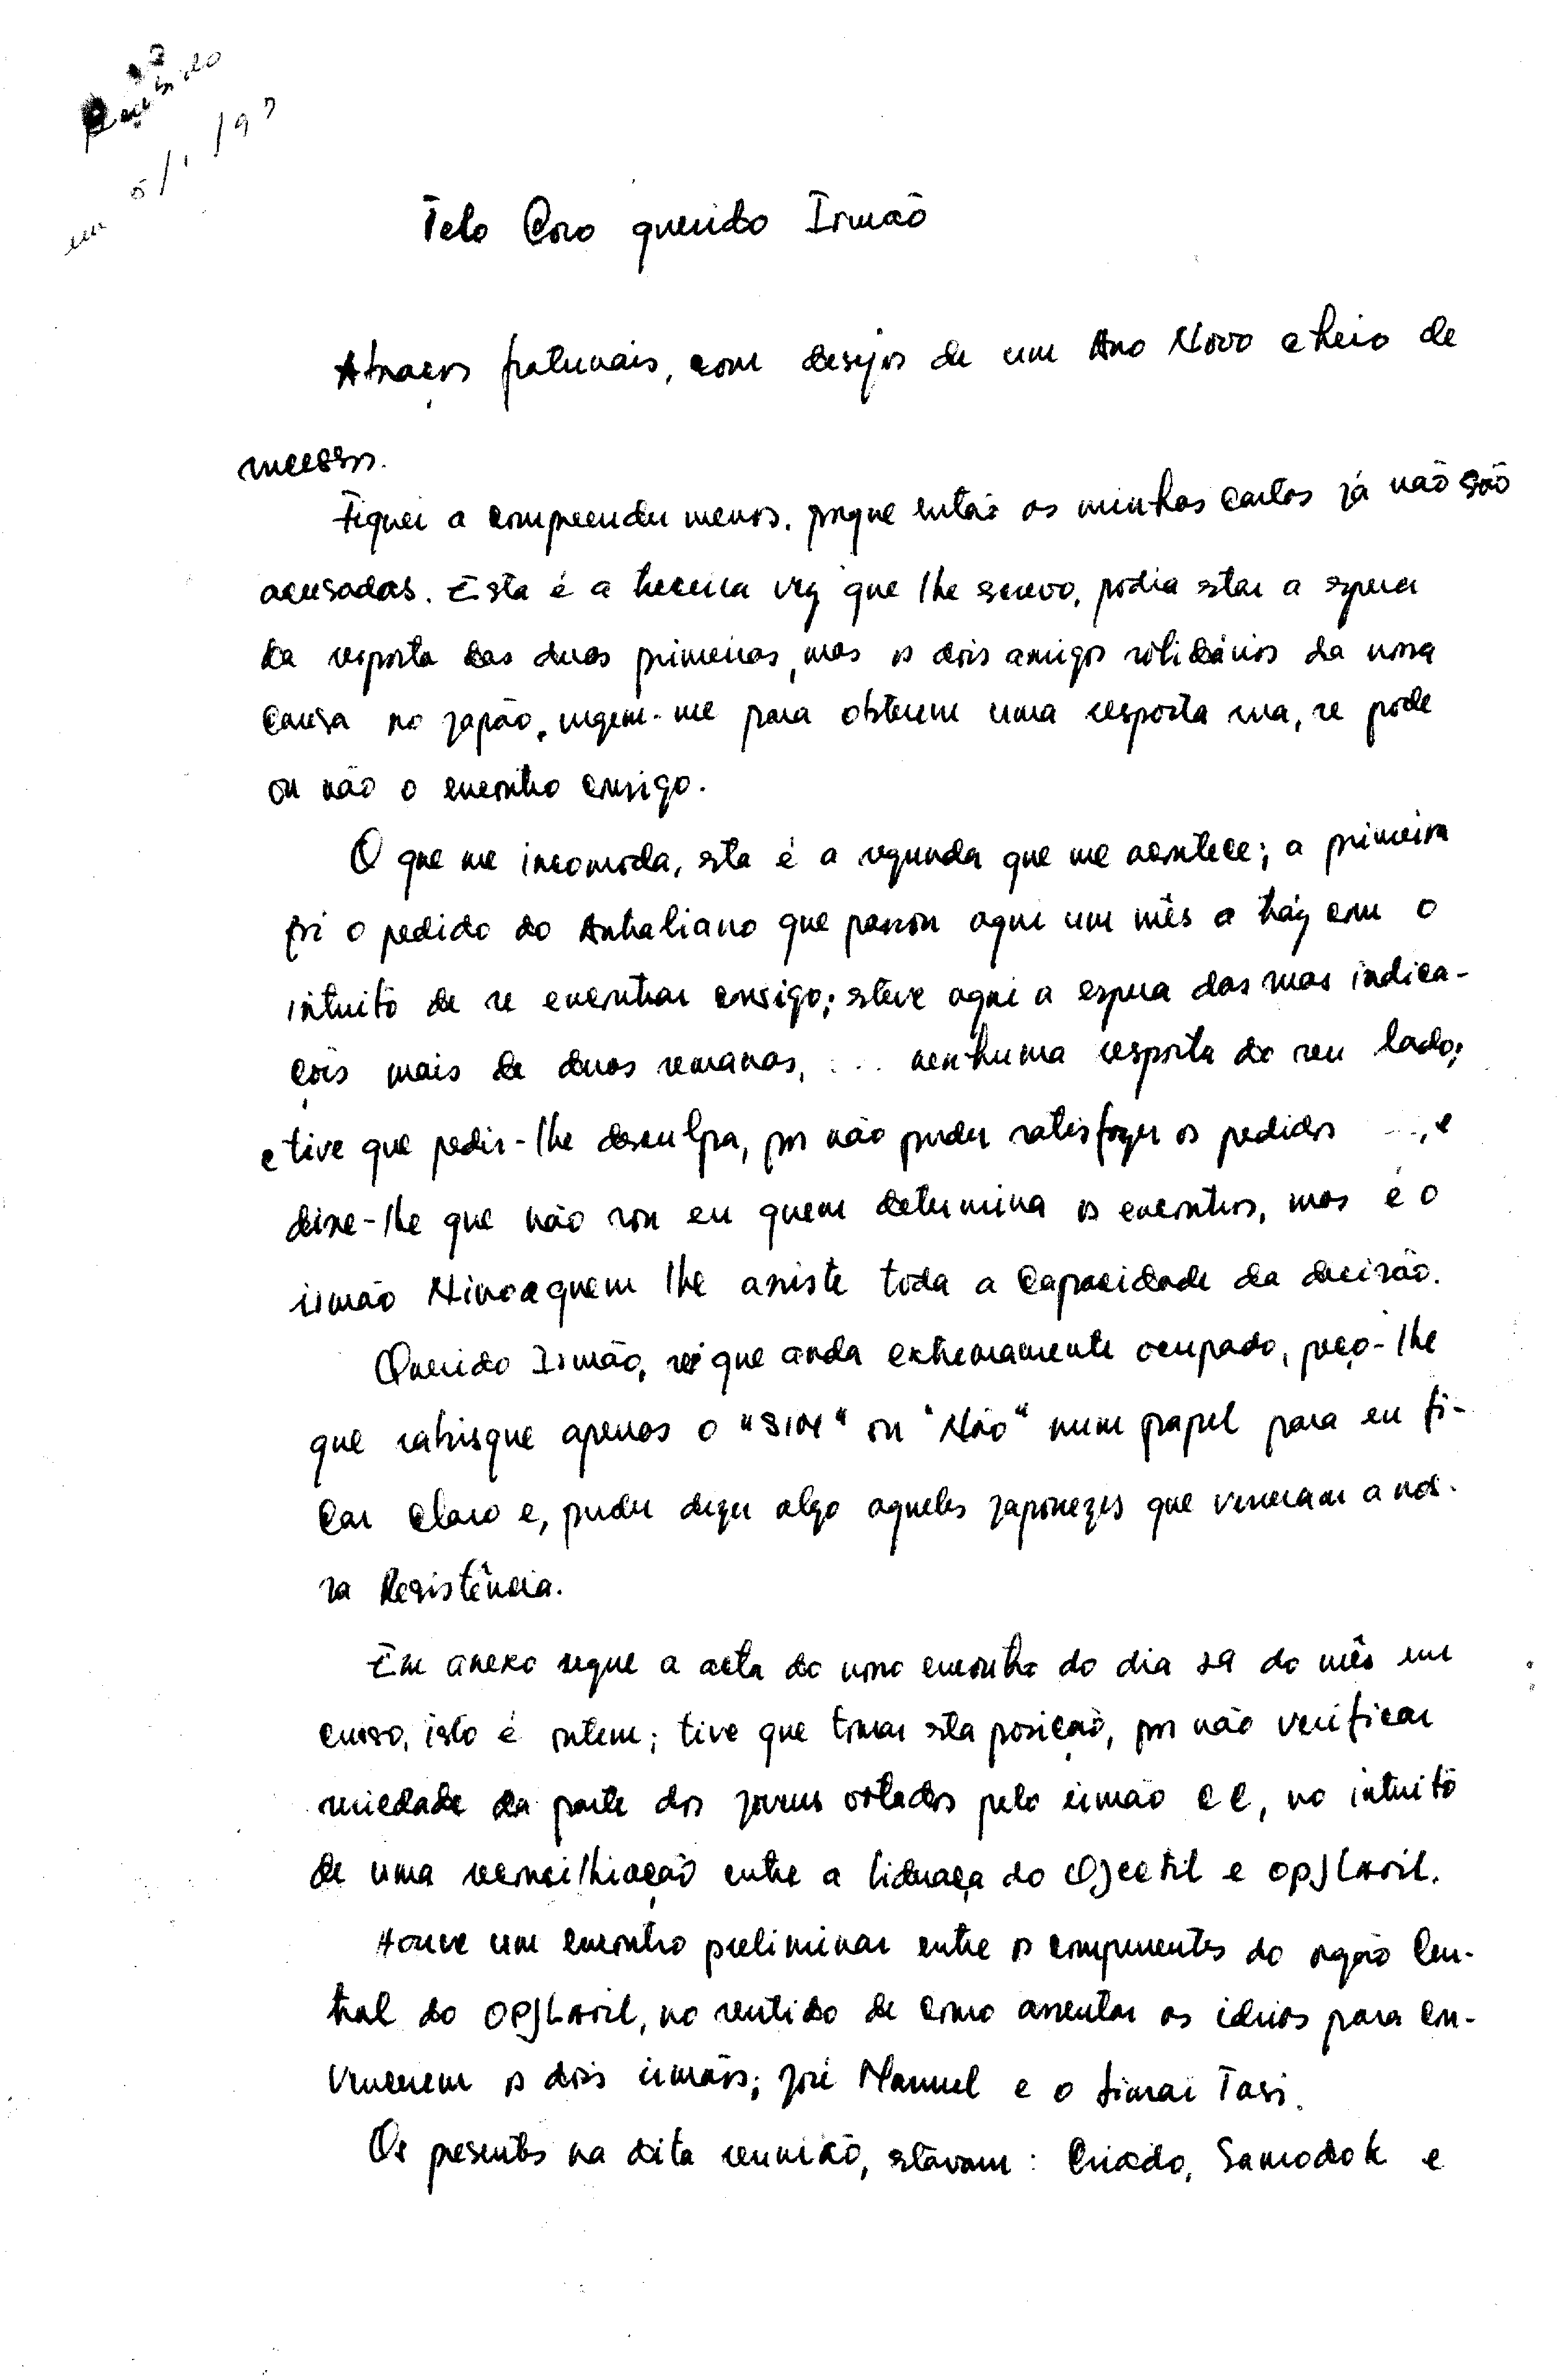 Recebido
em 5/1/97
Telo Coro querido Irmão
Abraços fraternais, com desejos de um Ano Novo cheio de
sucessos.
Fiquei a compreender menos, porque então as minhas cartas já não são
acusadas. Esta é a terceira vez que lhe escrevo, podia estar a espera
da resposta das duas primeiras, mas os dois amigos solidários da nossa
causa no Japão, urgem-me para obterem uma resposta sua, se pode
ou não o encontro consigo.
O que me incomoda, esta é a segunda que me acontece; a primeira
foi o pedido do Australiano que passou aqui um mês a tráz com o
intuito de se encontrar consigo; esteve aqui a espera das suas indica-
ções mais de duas semanas, ... nenhuma resposta do seu lado;
e tive que pedir-lhe desculpa, por não puder satisfazer os pedidos ..., e
disse-lhe que não sou eu quem determina os encontros, mas é o
irmão Nino a quem lhe assiste toda a capacidade da decisão.
Querido Irmão, sei que anda extremamente ocupado, peço-lhe
que rabisque apenas o "SIM" ou "Não" num papel para eu fi-
car claro e, puder dizer algo aqueles japonezes que veneram a nos-
sa Resistência.
Em anexo segue a acta do nosso encontro do dia 29 do mês em
curso, isto é ontem; tive que tomar esta posição, por não verificar
seriedade da parte dos jovens optados pelo irmão CC, no intuito
de uma reconcilhiação entre a liderança do OJECTIL e OPJLATIL.
Houve um encontro preliminar entre os componentes do orgão Cen-
tral do OPJLATIL, no sentido de como assentar as ideias para con-
vencerem os dois irmãos; José Manuel e o Timai Tasi.
Os presentes na dita reunião, estavam: Criado, Samodok e